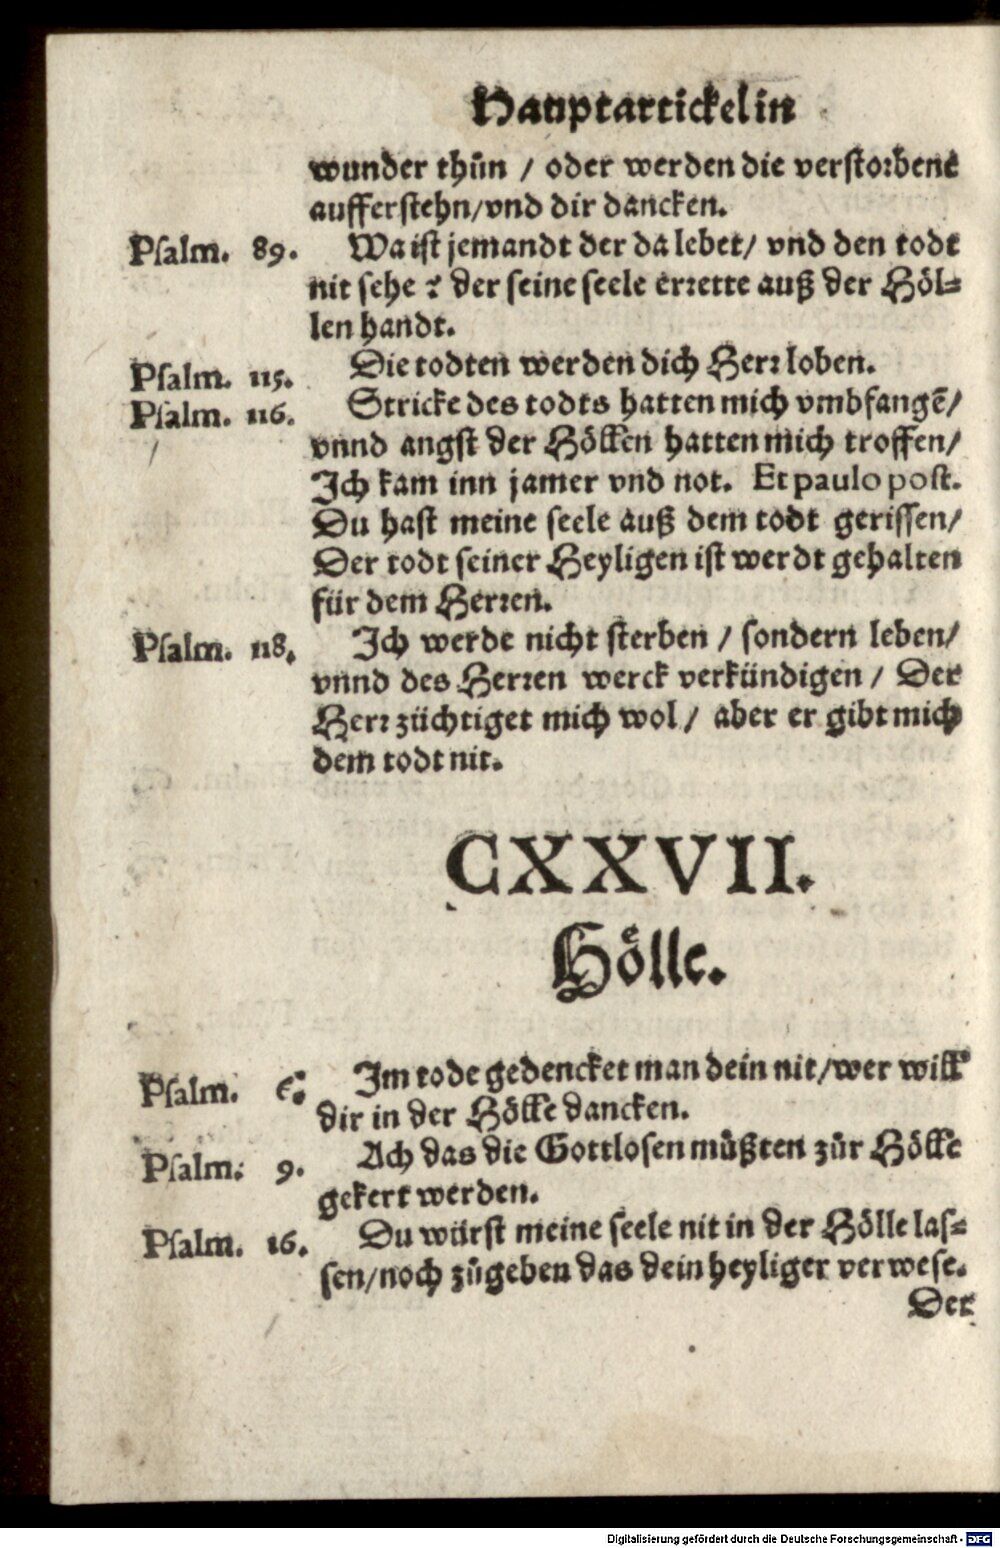 Hauptartickel in
wunder thůn / oder werden die verstorbene
aufferstehn/vnd dir dancken.
Psalm. 89. Wa ist jemandt der da lebet/ vnd den todt
nit sehe? der seine seele errette auß der Höl=
len handt.
Psalm. 115. Die todten werden dich Herr loben.
Psalm. 116. Stricke des todts hatten mich vmbfangẽ/
vnnd angst der Höllen hatten mich troffen/
Ich kam inn jamer vnd not. Et paulo post.
Du hast meine seele auß dem todt gerissen/
Der todt seiner Heyligen ist werdt gehalten
für dem Herren.
Psalm. 118. Ich werde nicht sterben / sondern leben/
vnnd des Herren werck verkündigen / Der
Herr züchtiget mich wol / aber er gibt mich
dem todt nit.
CXXVII.
Hölle.
Psalm. 6. Im tode gedencket man dein nit/wer will
dir in der Hölle dancken.
Psalm. 9. Ach das die Gottlosen müßten zůr Hölle
gekert werden.
Psalm. 16. Du würst meine seele nit in der Hölle las=
sen/noch zůgeben das dein heyliger verwese.
Der
Digitalisierung gefördert durch die Deutsche Forschungsgemeinschaft - DFG